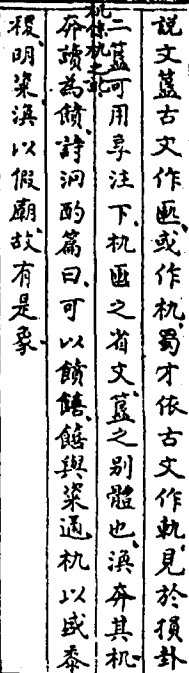 説文簋古文作匭、或作朹蜀才依古文作軌見於損卦
二簋可用享注下、朹匭之省文、簋之别體也、渙奔其机、
奔讀為饙、詩泂酌篇曰、可以饙饎、饎與粢通、朹以盛黍
稷、明粢渙以假廟、故有是象、